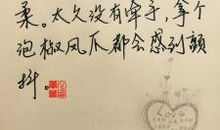 柔。太久没有牵手，拿个
泡椒凤爪都会感到颤
抖。
LOVE